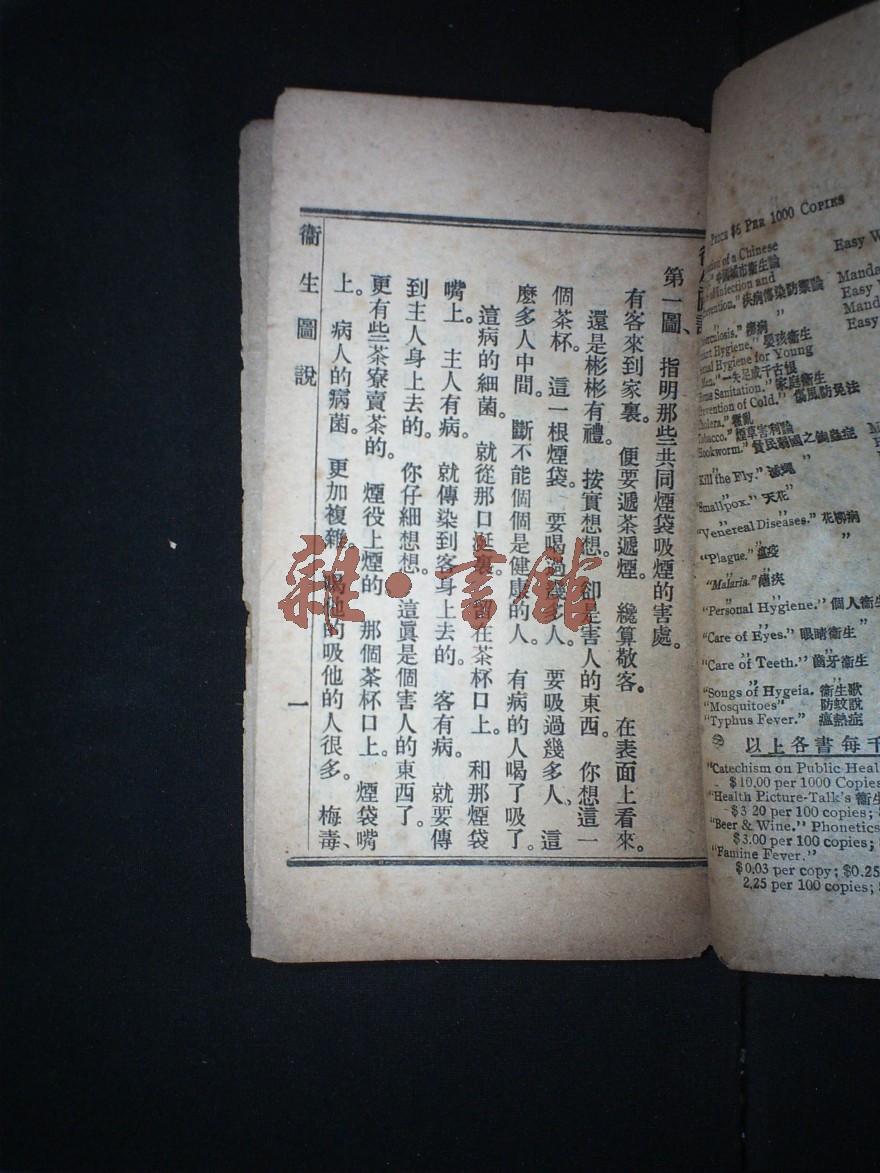 第一圖、 指明那些共同煙袋吸煙的害處。
有客來到家裏。 便要遞茶遞煙。 纔算敬客。 在表面上看來。
還是彬彬有禮。 按實想想。卻是害人的東西。 你想這一
個茶杯。 這一根煙袋。 要喝過幾多人。 要吸過幾多人、 這
麼多人中間。 斷不能個個是健康的人。 有病的人喝了吸了。
這病的細菌。 就從那口涎裏。留在茶杯口上。 和那煙袋
嘴上。 主人有病。 就傳染到客身上去的。 客有病。 就要傳
到主人身上去的。 你仔細想想。這眞是個害人的東西了。
更有些茶寮賣茶的。 煙役上煙的 那個茶杯口上。 煙袋嘴
上。 病人的病菌。 更加複雜。喝他的吸他的人很多。 梅毒、
衞生圖說 一
雜·書館
PRICE $6 PER 1000 COPIES
of a Chinese Easy W
" 中國城市衞生論
Infection and
Prevention." 疾病傳染防禦論 Manda
Easy
" 癆病 Manda
Hygiene." 嬰孩衞生 Easy
Hygiene for Young
Men." 一失足成千古恨
Sanitation." 家庭衞生
Prevention of Cold." 傷風防免法
Cholera." 霍亂
Tobacco." 煙草害利論
Hookworm." 貧民弱國之鉤蟲症
"Kill the Fly." 滅蠅
"Smallpox." 天花
"Venereal Diseases." 花柳病
"Plague." 瘟疫
"Malaria." 瘧疾
"Personal Hygiene." 個人衞生
"Care of Eyes." 眼睛衞生
"Care of Teeth." 齒牙衞生
"Songs of Hygeia. 衞生歌
"Mosquitoes" 防蚊說
"Typhus Fever." 瘟熱症
以上各書每千
"Catechism on Public Heal
$10.00 per 1000 Copies
"Health Picture-Talk's 衞生
$3 20 per 100 copies;
"Beer & Wine." Phonetics
$3.00 per 100 copies;
"Famine Fever."
$0.03 per copy; $0.25
2.25 per 100 copies;